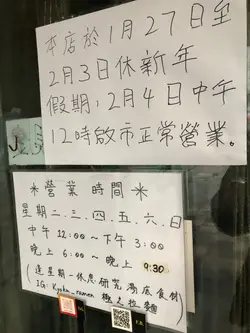 本店於1月27日至
2月3日休新年
假期,2月4日中午
12時啟市正常營業.
*營業時間*
星期二.三.四.五.六.日
中午 12:00~下午 3:00
晚上 6:00~晚上 9:30
(逢星期一休息研究湯底食材)
IG: Kyoku_ramen 極之拉麵